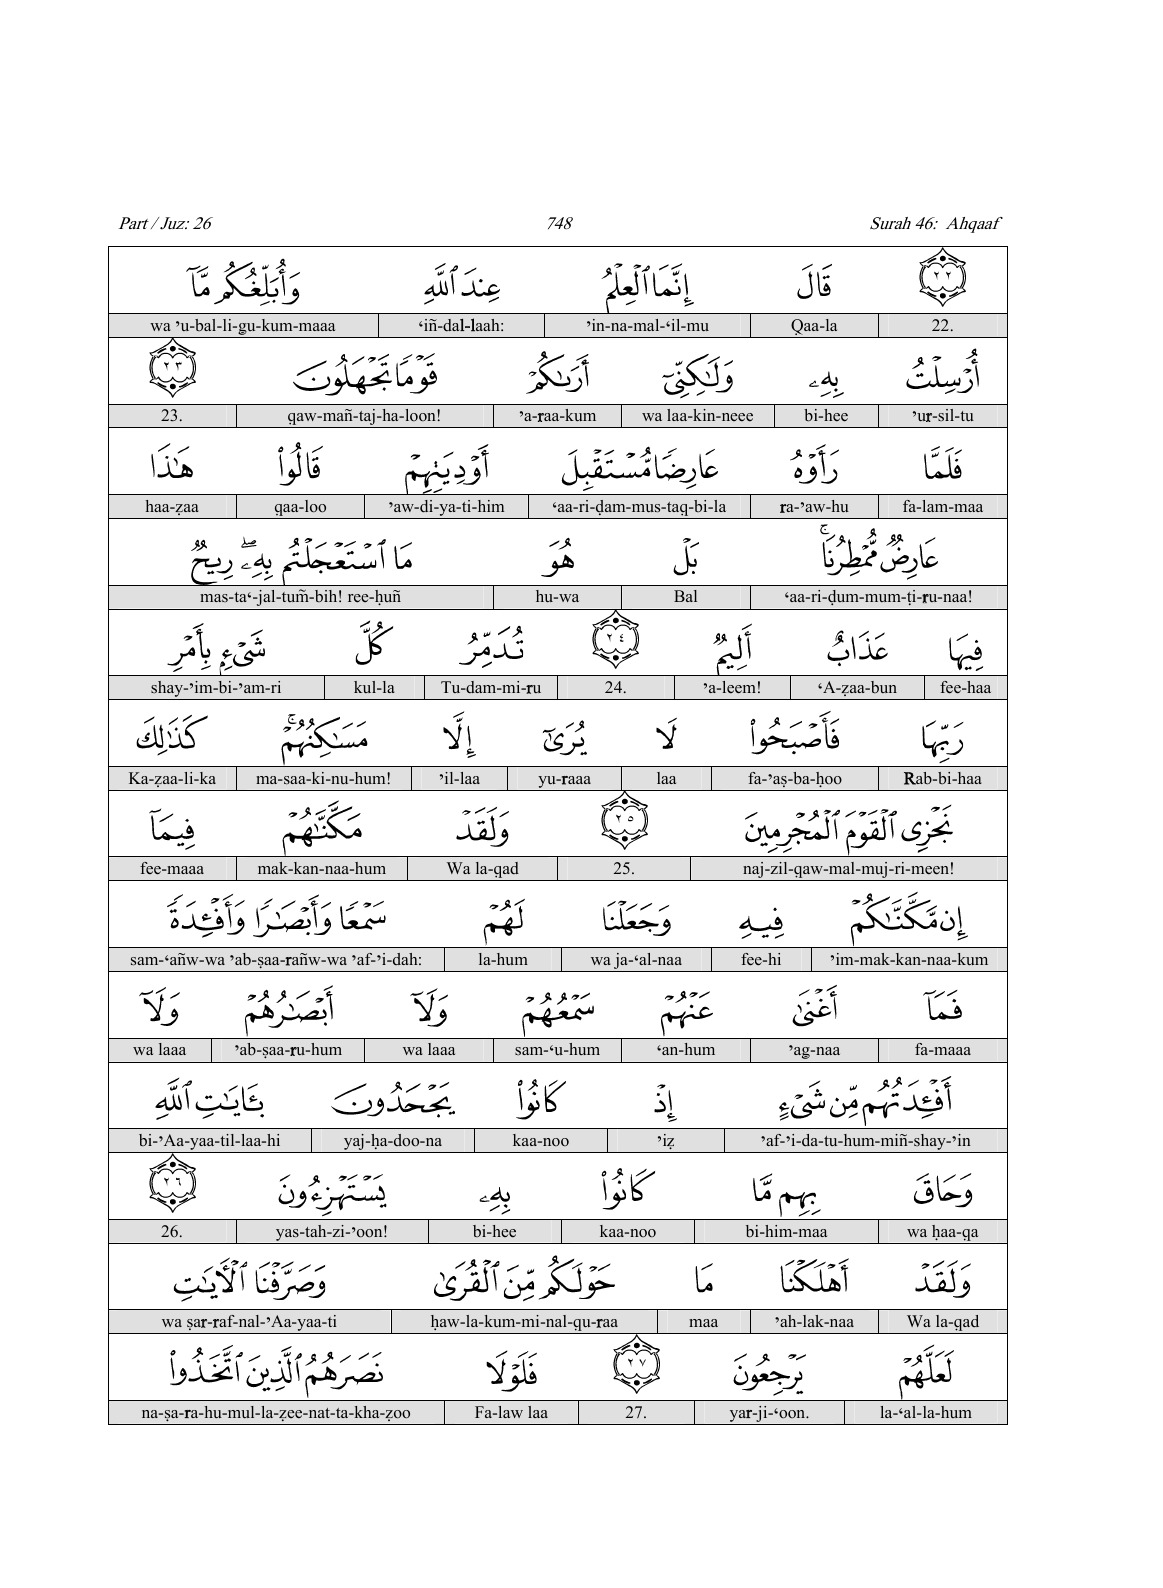 Part / Juz: 26 748 Surah 46: Ahqaaf
٢٢ قَالَ إِنَّمَا ٱلْعِلْمُ عِندَ ٱللَّهِ وَأُبَلِّغُكُم مَّآ
22. Qaa-la ’in-na-mal-‘il-mu ‘iñ-dal-laah: wa ’u-bal-li-gu-kum-maaa
أُرْسِلْتُ بِهِۦ وَلَٰكِنِّىٓ أَرَىٰكُمْ قَوْمًا تَجْهَلُونَ ٢٣
’ur-sil-tu bi-hee wa laa-kin-neee ’a-raa-kum qaw-mañ-taj-ha-loon! 23.
فَلَمَّا رَأَوْهُ عَارِضًا مُّسْتَقْبِلَ أَوْدِيَتِهِمْ قَالُوا۟ هَٰذَا
fa-lam-maa ra-’aw-hu ‘aa-ri-ḍam-mus-taq-bi-la ’aw-di-ya-ti-him qaa-loo haa-ẓaa
عَارِضٌ مُّمْطِرُنَا ۚ بَلْ هُوَ مَا ٱسْتَعْجَلْتُم بِهِۦ ۖ رِيحٌ
‘aa-ri-ḍum-mum-ṭi-ru-naa! Bal hu-wa mas-ta‘-jal-tum̃-bih! ree-ḥuñ
فِيهَا عَذَابٌ أَلِيمٌ ٢٤ تُدَمِّرُ كُلَّ شَىْءٍۭ بِأَمْرِ
fee-haa ‘A-ẓaa-bun ’a-leem! 24. Tu-dam-mi-ru kul-la shay-’im-bi-’am-ri
رَبِّهَا فَأَصْبَحُوا۟ لَا يُرَىٰٓ إِلَّا مَسَٰكِنُهُمْ ۚ كَذَٰلِكَ
Rab-bi-haa fa-’aṣ-ba-ḥoo laa yu-raaa ’il-laa ma-saa-ki-nu-hum! Ka-ẓaa-li-ka
نَجْزِى ٱلْقَوْمَ ٱلْمُجْرِمِينَ ٢٥ وَلَقَدْ مَكَّنَّٰهُمْ فِيمَآ
naj-zil-qaw-mal-muj-ri-meen! 25. Wa la-qad mak-kan-naa-hum fee-maaa
إِن مَّكَّنَّٰكُمْ فِيهِ وَجَعَلْنَا لَهُمْ سَمْعًا وَأَبْصَٰرًا وَأَفْـِٔدَةً
’im-mak-kan-naa-kum fee-hi wa ja-‘al-naa la-hum sam-‘añw-wa ’ab-ṣaa-rañw-wa ’af-’i-dah:
فَمَآ أَغْنَىٰ عَنْهُمْ سَمْعُهُمْ وَلَآ أَبْصَٰرُهُمْ وَلَآ
fa-maaa ’ag-naa ‘an-hum sam-‘u-hum wa laaa ’ab-ṣaa-ru-hum wa laaa
أَفْـِٔدَتُهُم مِّن شَىْءٍ إِذْ كَانُوا۟ يَجْحَدُونَ بِـَٔايَٰتِ ٱللَّهِ
’af-’i-da-tu-hum-miñ-shay-’in ’iẓ kaa-noo yaj-ḥa-doo-na bi-’Aa-yaa-til-laa-hi
وَحَاقَ بِهِم مَّا كَانُوا۟ بِهِۦ يَسْتَهْزِءُونَ ٢٦
wa ḥaa-qa bi-him-maa kaa-noo bi-hee yas-tah-zi-’oon! 26.
وَلَقَدْ أَهْلَكْنَا مَا حَوْلَكُم مِّنَ ٱلْقُرَىٰ وَصَرَّفْنَا ٱلْـَٔايَٰتِ
Wa la-qad ’ah-lak-naa maa ḥaw-la-kum-mi-nal-qu-raa wa ṣar-raf-nal-’Aa-yaa-ti
لَعَلَّهُمْ يَرْجِعُونَ ٢٧ فَلَوْلَا نَصَرَهُمُ ٱلَّذِينَ ٱتَّخَذُوا۟
la-‘al-la-hum yar-ji-‘oon. 27. Fa-law laa na-ṣa-ra-hu-mul-la-ẓee-nat-ta-kha-ẓoo